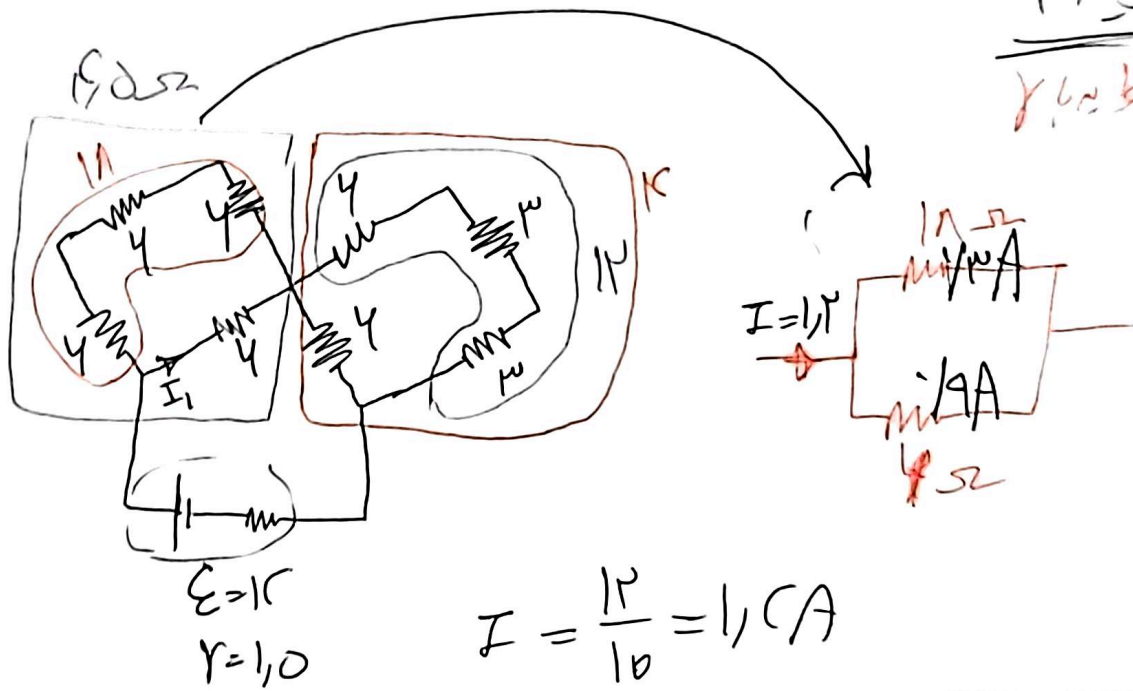 ۴٫۵Ω
۱۸
۶
۶
۶
۶
I₁
۶
۳
۳
۶
۱۲
۴
ε=۱۲
r=۱٫۵
I = ۱۲/۱۰ = ۱٫۲A
I=۱٫۲
۱۸Ω
۰/۳A
۰/۹A
۶Ω